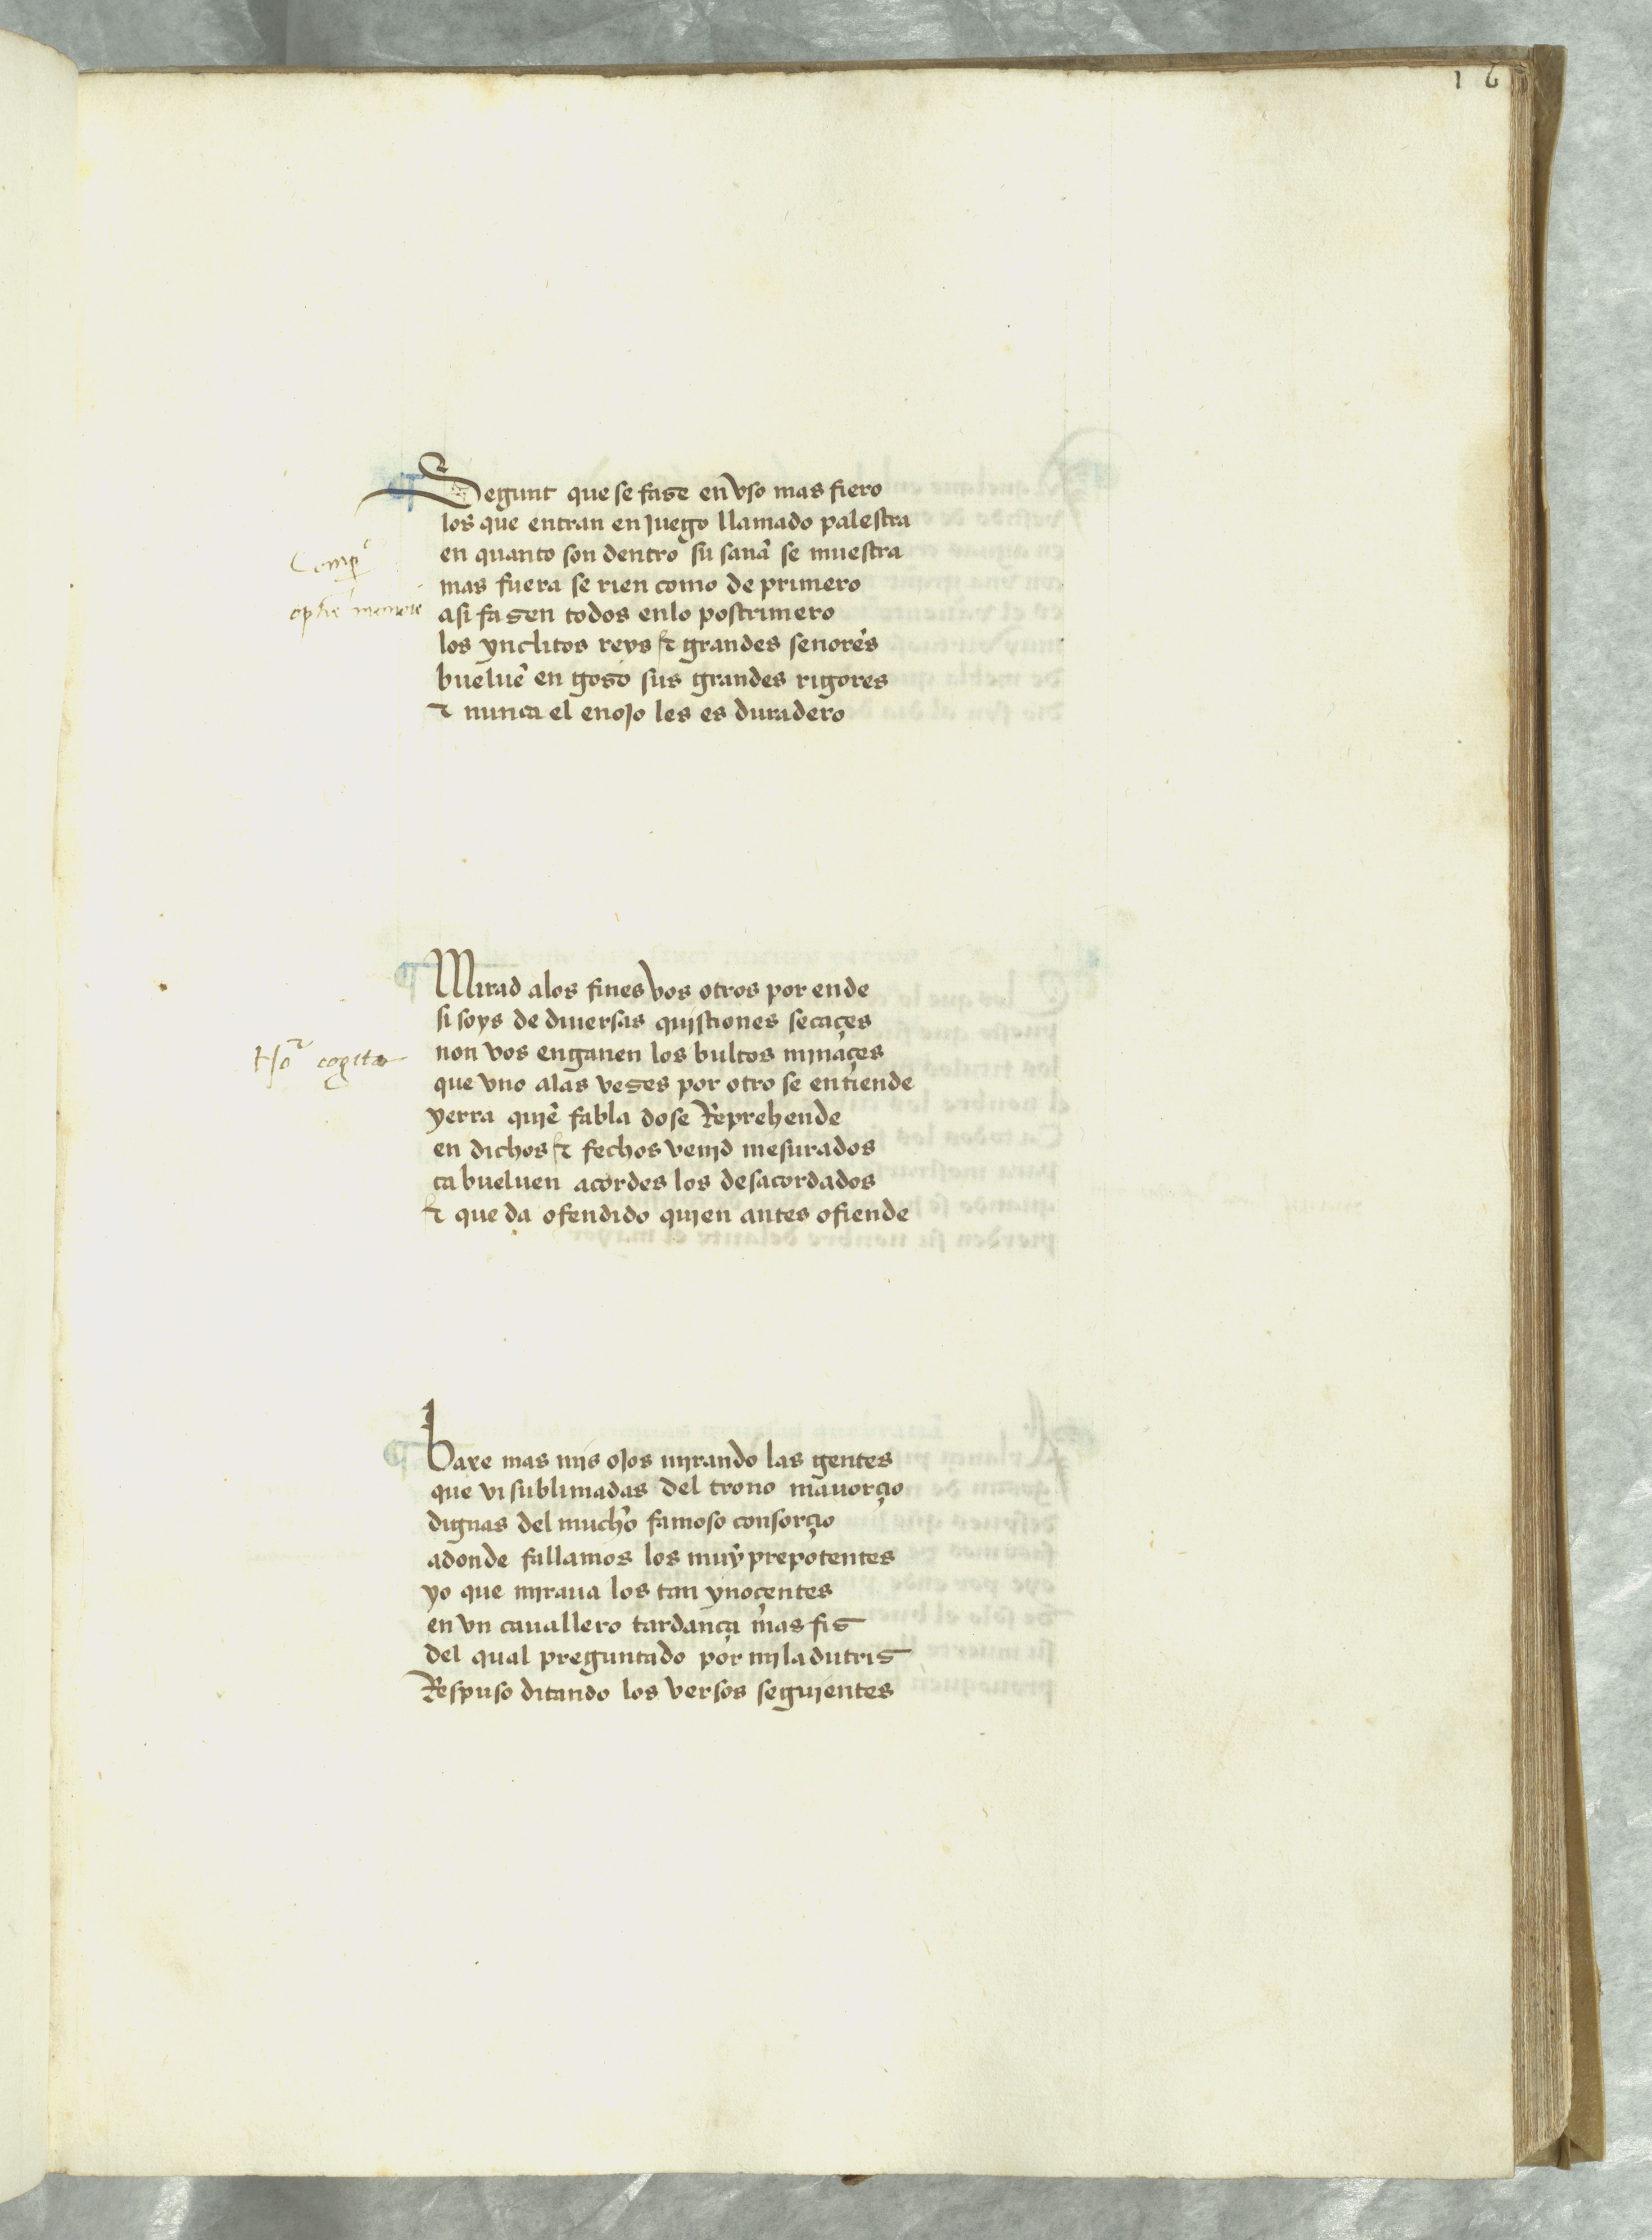 16
Segunt que se faze en vso mas fiero
los que entran en juego llamado palestra
en quanto son dentro su sana se muestra
mas fuera se rien como de primero
asi fazen todos enlo postrimero
los ynclitos reys & grandes senores
bueluē en gozo sus grandes rigores
& nunca el enojo les es duradero
Mirad alos fines vos otros por ende
si soys de diuersas quistiones secaçes
non vos enganen los bultos minaçes
que vno alas vezes por otro se entiende
yerra quiē fabla dose Reprehende
en dichos & fechos venid mesurados
ca bueluen acordes los desacordados
& que da ofendido quien antes ofiende
baxe mas mis ojos mirando las gentes
que vi sublimadas del trono mauorçio
dignas del mucho famoso consorçio
adonde fallamos los muy prepotentes
yo que miraua los tan ynoçentes
en vn cauallero tardança mas fiz
del qual preguntado por mi la dutriz
Respuso ditando los versos seguientes